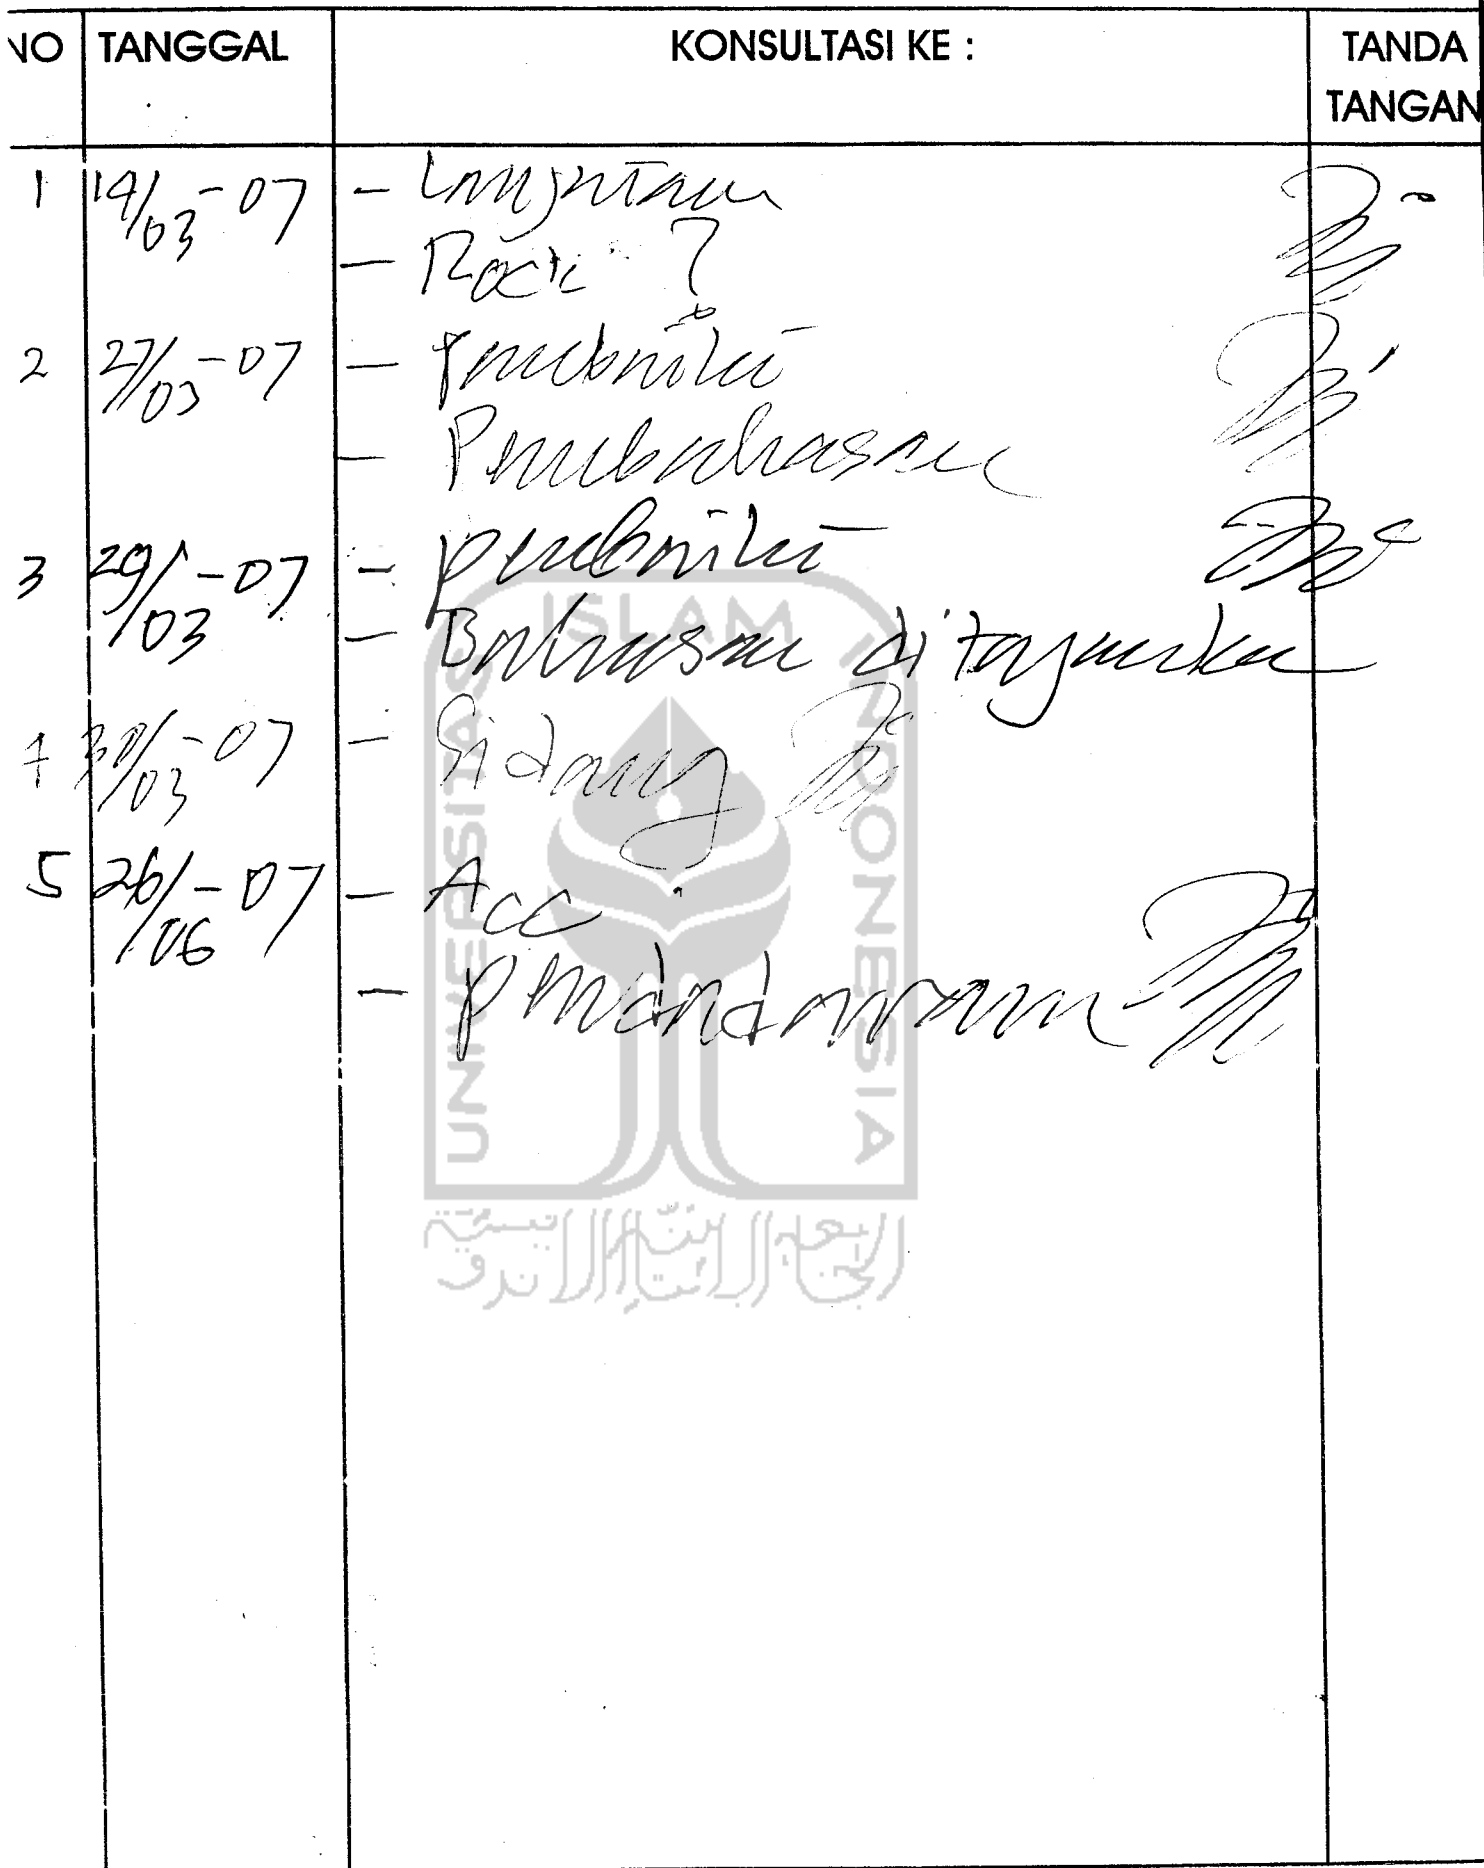 NO TANGGAL KONSULTASI KE : TANDA TANGAN
1 19/03-07 - Lanjutkan
-
2 27/03-07 - perbaiki
- Pembahasan
3 29/03-07 - perbaiki
- Bahasan ditajamkan
4 30/03-07 - Sidang
5 26/06-07 - Acc
- pendadaran
UNIVERSITAS ISLAM INDONESIA